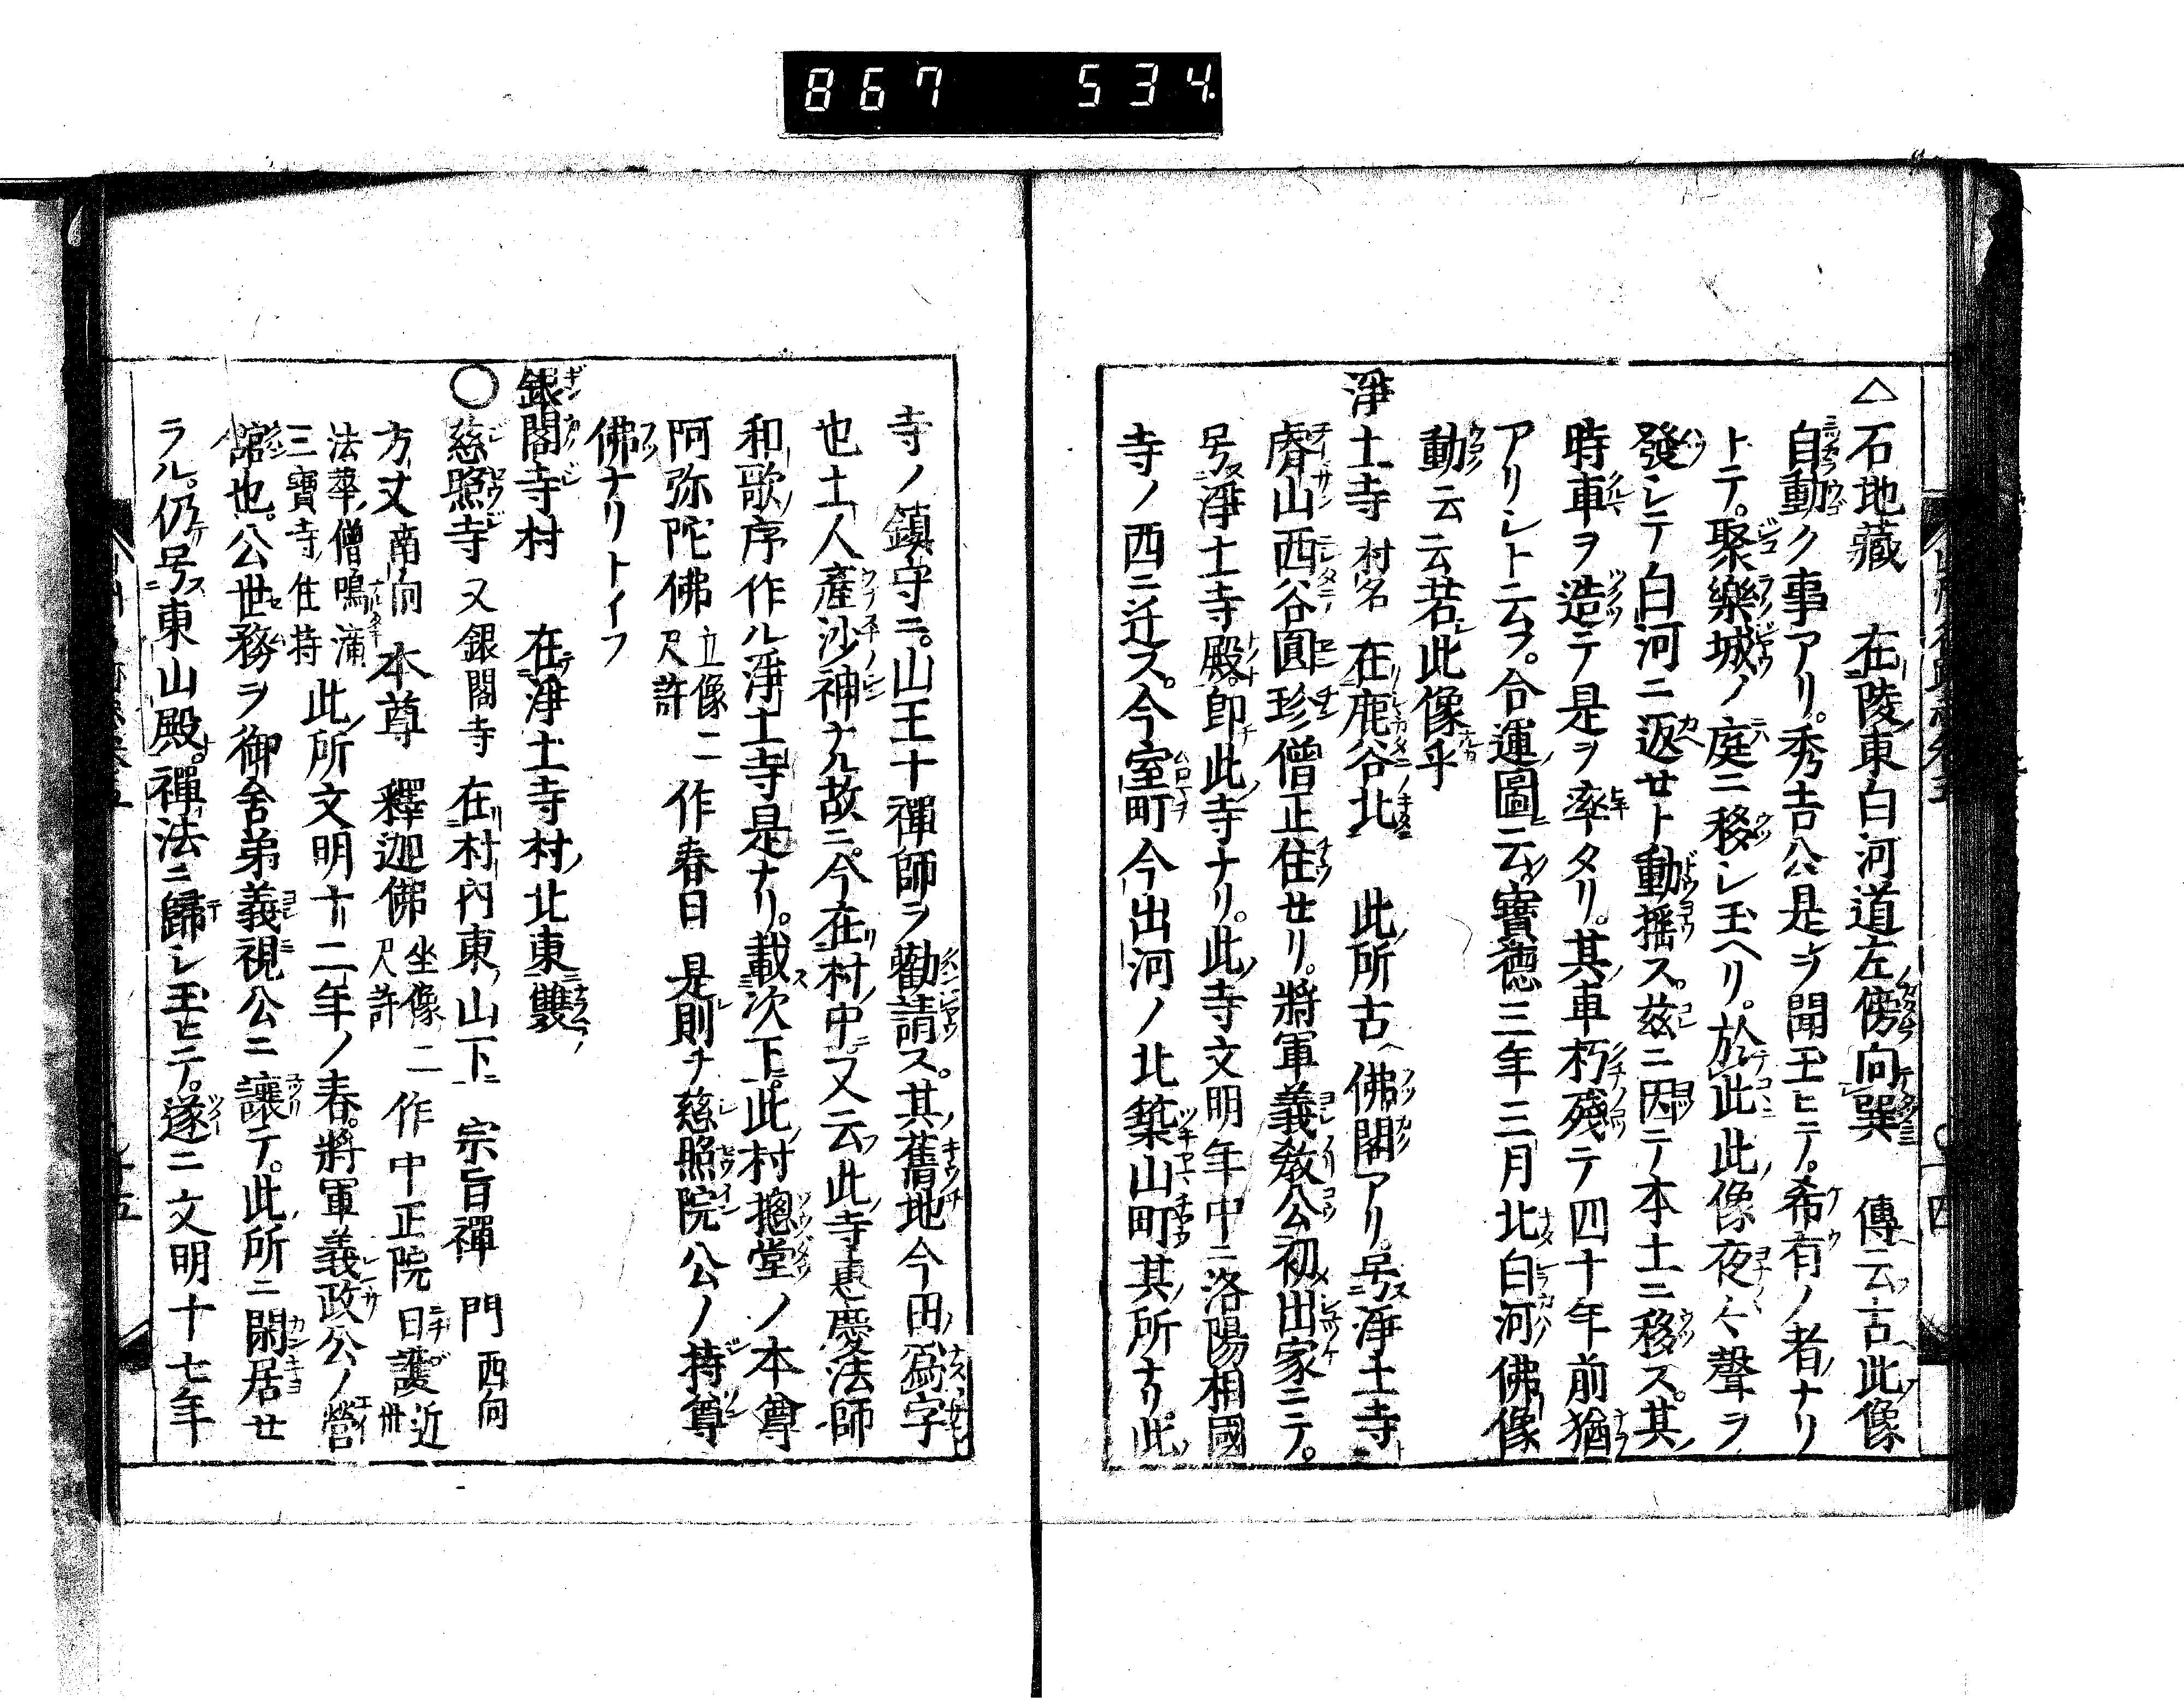 867 534
△石地藏 在陵東白河道左傍向巽 傳云古此像
自動ク事アリ。秀吉公是ヲ聞玉ヒテ。希有ノ者ナリ
トテ。聚樂城ノ庭ニ移シ玉ヘリ。於此此像夜々聲ヲ
發シテ白河ニ返セト動揺ス。兹ニ因テ本土ニ移ス。其
時車ヲ造テ是ヲ率タリ。其車朽殘テ四十年前猶
アリシト云フ。合運圖云。寶德三年三月北白河佛像
動云云若此像乎
淨土寺 村名 在鹿谷北 此所古佛閣アリ。号淨土寺
山西谷圓珍僧正住セリ。將軍義敎公初出家ニテ。
号淨土寺殿。即此寺ナリ。此寺文明年中ニ洛陽相國
寺ノ西ニ迁ス。今室町今出河ノ北築山町其所ナリ。此
寺ノ鎮守ニ。山王十禪師ヲ勸請ス。其舊地今田爲字
也土人産沙神ナル故ニ。今在村中又云此寺惠慶法師
和歌序作ル淨土寺是ナリ。載次下。此村摠堂ノ本尊
阿弥陀佛 立像二尺許 作春日 是則チ慈照院公ノ持尊
佛ナリトイフ
銀閣寺村 在淨土寺村北東雙
○慈照寺 又銀閣寺 在村内東山下 宗旨禪 門西向
方丈南向 本尊 釋迦佛 坐像二尺許 作中正院日護 近世
法華僧鳴瀧三寶寺住持 此所文明十二年ノ春。將軍義政公ノ營
舘也。公世務ヲ御舎弟義視公ニ讓テ。此所ニ閑居セ
ラル。仍号東山殿。禪法ニ歸シ玉ヒテ。遂ニ文明十七年